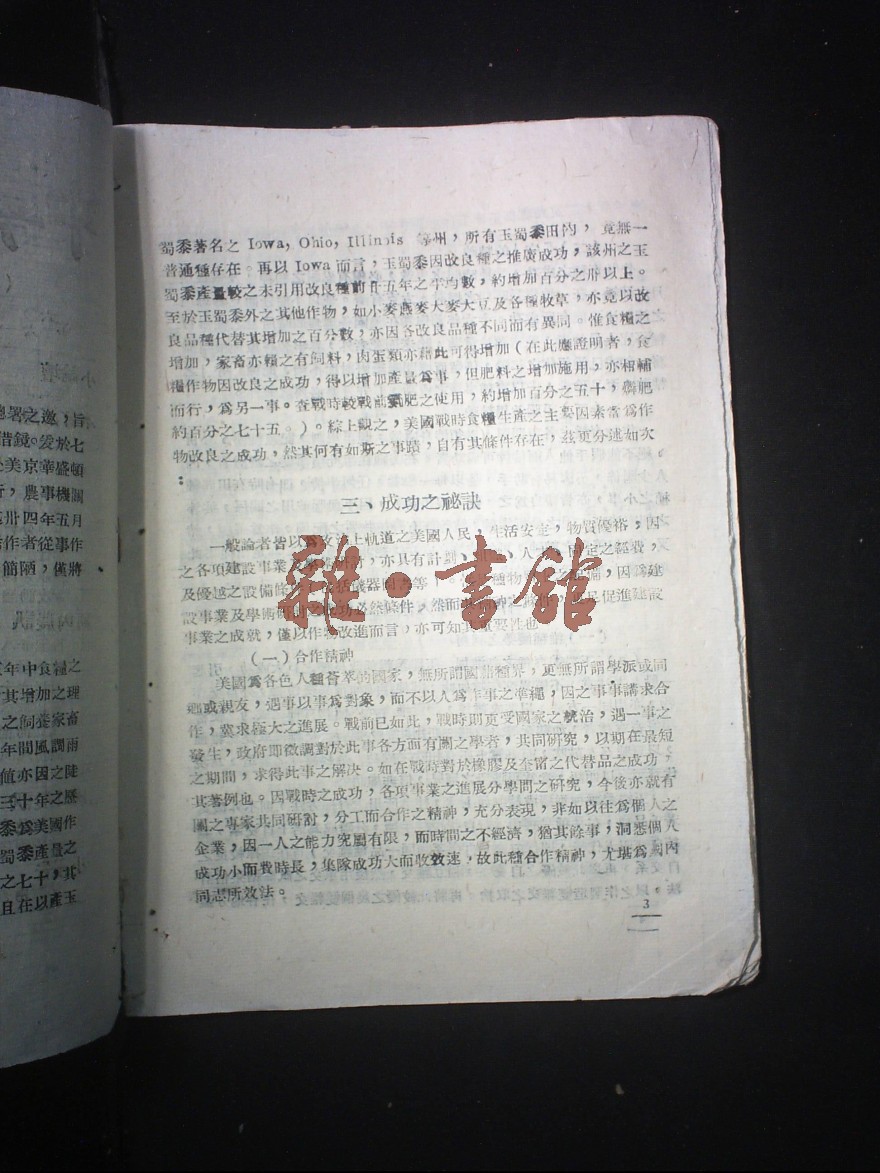 總署之邀，旨
借鏡。爰於七
美京華盛頓
，農事機關
卅四年五月
作者從事作
簡陋，僅將
年中食糧之
其增加之理
之飼養家畜
年間風調雨
值亦因之陡
三十年之歷
黍爲美國作
蜀黍產量之
之七十，其
且在以產玉
蜀黍著名之 Iowa, Ohio, Illinois 等州，所有玉蜀黍田內，竟無一
普通種存在。再以 Iowa 而言，玉蜀黍因改良種之推廣成功，該州之玉
蜀黍產量較之未引用改良種前十五年之平均數，約增加百分之卅以上。
至於玉蜀黍外之其他作物，如小麥燕麥大麥大豆及各種牧草，亦竟以改
良品種代替其增加之百分數，亦因各改良品種不同而有異同。惟食糧之
增加，家畜亦賴之有飼料，肉蛋類亦藉此可得增加（在此應證明者，食
糧作物因改良之成功，得以增加產量爲事，但肥料之增加施用，亦相輔
而行，爲另一事。查戰時較戰前氮肥之使用，約增加百分之五十，磷肥
約百分之七十五。）。綜上觀之，美國戰時食糧生產之主要因素當爲作
物改良之成功，然其何有如斯之事蹟，自有其條件存在，茲更分述如次
：
三、成功之祕訣
一般論者皆以爲政治上軌道之美國人民，生活安定，物質優裕，因
之各項建設事業及學術研究，亦具有計劃、人才、固定之經費，
及優越之設備條件（包括儀器圖書等）。備，因爲建
設事業及學術研究之成功必然條件，然而民促進建設
事業之成就，僅以作物改進而言，亦可知其重要性也
（一）合作精神
美國爲各色人種薈萃的國家，無所謂國籍種界，更無所謂學派或同
鄉或親友，遇事以事爲對象，而不以人爲作事之準繩，因之事事講求合
作，冀求極大之進展。戰前已如此，戰時則更受國家之統治，遇一事之
發生，政府即徵調對於此事各方面有關之學者，共同研究，以期在最短
之期間，求得此事之解決。如在戰時對於橡膠及奎甯之代替品之成功，
其著例也。因戰時之成功，各項事業之進展分學問之研究，今後亦就有
關之專家共同研討，分工而合作之精神，充分表現，非如以往爲個人之
企業，因一人之能力究屬有限，而時間之不經濟，猶其餘事，洞悉個人
成功小而費時長，集隊成功大而收效速，故此種合作精神，尤堪爲國內
同志所效法。
3
雜·書館